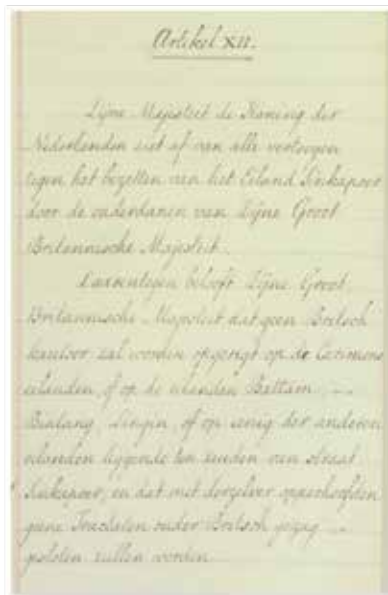 Artikel XII.
Zijne Majesteit de Koning der
Nederlanden ziet af van alle vertoogen
tegen het bezetten van het Eiland Sinkapoer
door de onderdanen van Zijne Groot
Britannische Majesteit.
Daarentegen belooft Zijne Groot
Britannische Majesteit dat geen Britsch
kantoor zal worden opgerigt op de Carimons
eilanden, of op de eilanden Battam,
Bintang, Lingin, of op eenig der anderen
eilanden liggende ten zuiden van straat
Sinkapoer, en dat met derzelver opperhoofden
geene Tractaten onder Britsch gezag
gesloten zullen worden